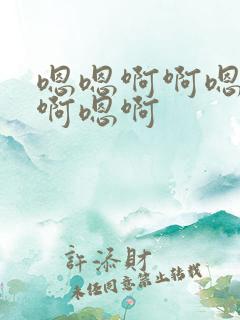 嗯嗯啊啊嗯
啊嗯啊
許添財
未任同意禁止转载